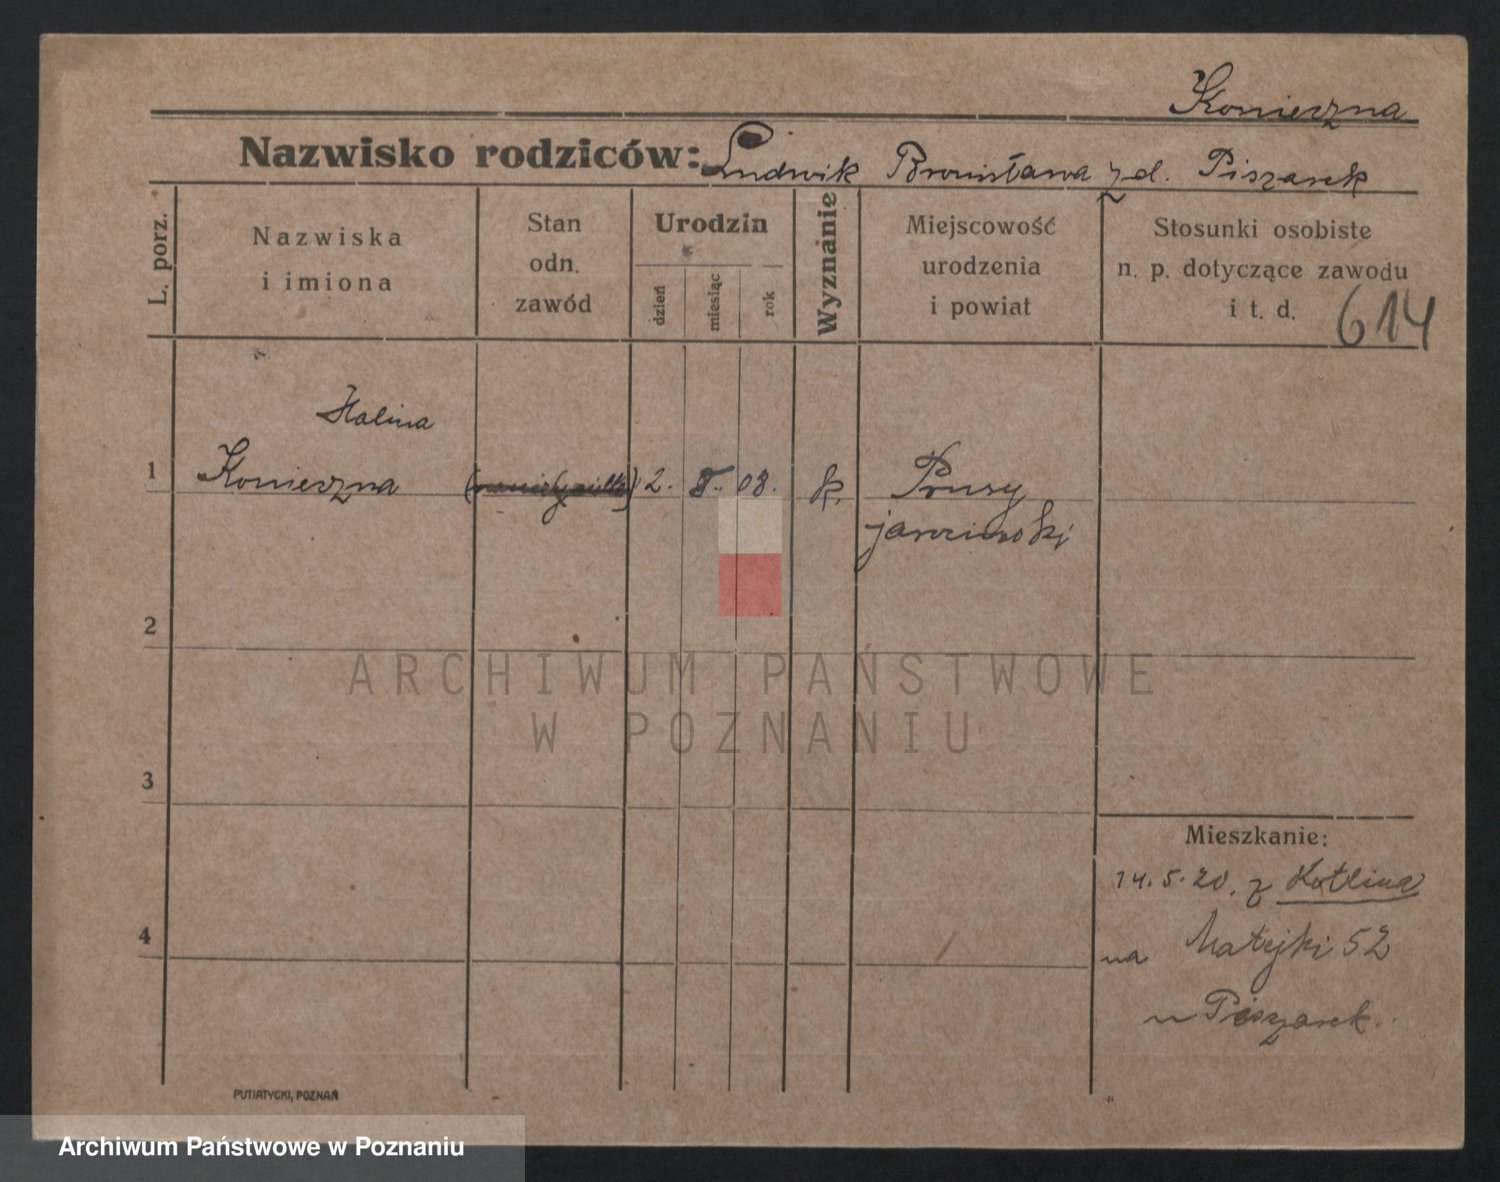 Konieczna
Nazwisko rodziców: Ludwik Bronisława zd. Piszarek
L. porz.
Nazwiska
i imiona
Stan
odn.
zawód
Urodzin
dzień
miesiąc
rok
Wyznanie
Miejscowość
urodzenia
i powiat
Stosunki osobiste
n. p. dotyczące zawodu
i t. d.
614
Halina
1 Konieczna 2. 8. 08. k. Prusy
jarocinski
2
ARCHIWUM PAŃSTWOWE
W POZNANIU
3
Mieszkanie:
14.5.20. z Kotlina
4
na Matejki 52
u Piszarek.
PUTIATYCKI, POZNAŃ
Archiwum Państwowe w Poznaniu